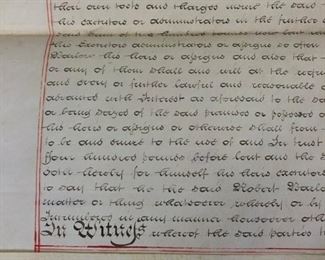 their own costs and charges insure the said
his executors or administrators in the further
said sum of two hundred pounds now lent
his executors administrators or assigns so often
Barlow his heirs or assigns and also that
or any of them shall and will at the
and every or further lawful and reasonable
advanced with Interest as aforesaid to the
or being seized of the said premises or possessed of
his heirs or assigns or otherwise shall from
to be and enure to the use of and In trust
ffour hundred pounds before lent and the
doth hereby for himself his heirs executors
to say that he the said Robert Barlow
matter or thing whatsoever whereby or by
Incumbered in any manner howsoever
In Witness whereof the said parties to